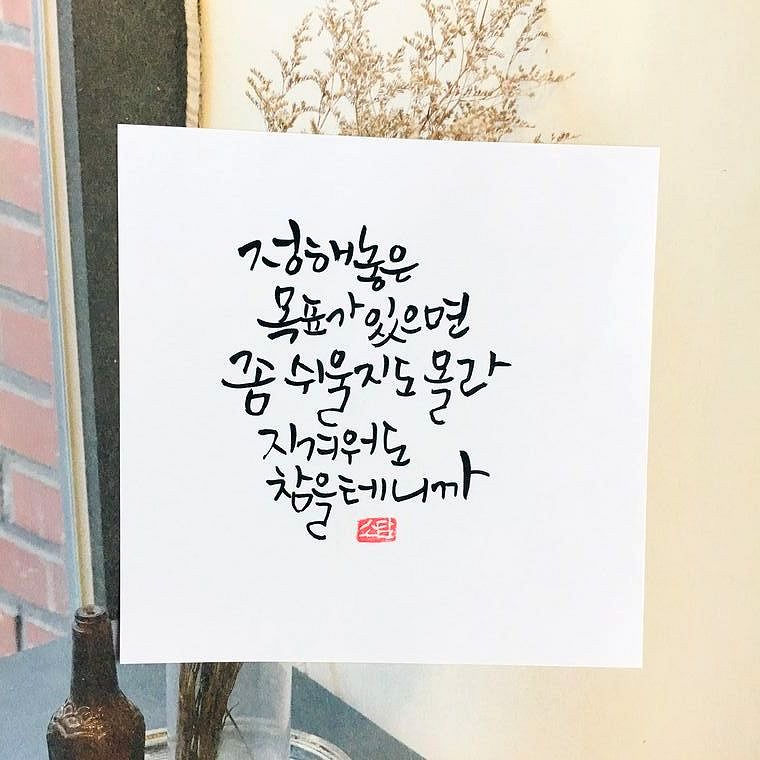 정해놓은
목표가 있으면
좀 쉬울지도 몰라
지겨워도
참을테니까
소담